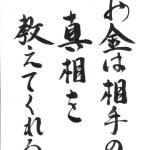 お金は相手の
真相を
教えてくれる